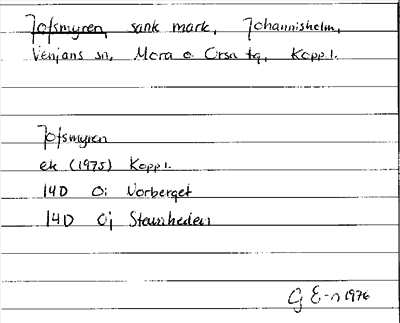 Jofsmyren, sank mark, Johannisholm,
Venjans sn, Mora o Orsa tg, Kopp l.
Jofsmyren
ek (1975) Kopp l.
14D 0i Vorberget
14D 0j Stennheden
G E-n 1976